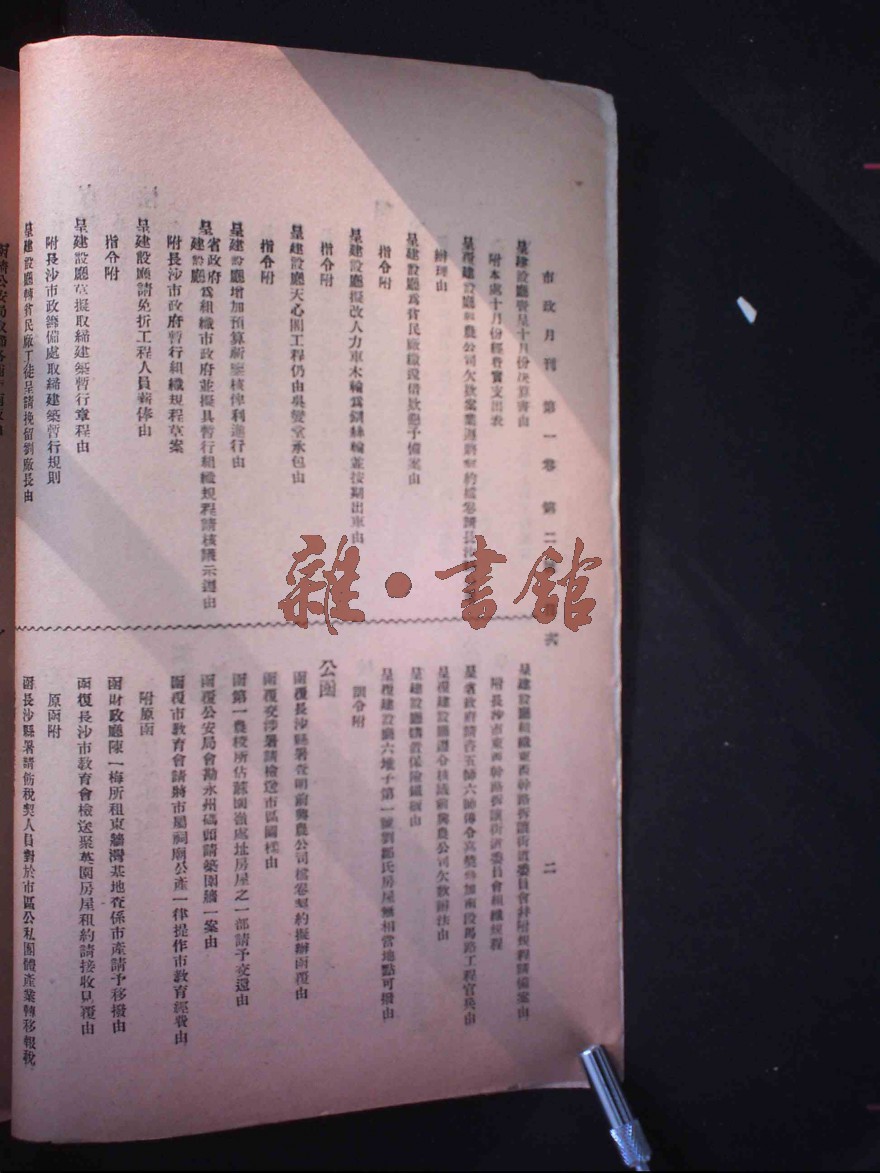 市政月刊 第一卷 第二 次 二
呈建設廳賫呈十月份決算書由
附本處十月份經費實支出表
呈覆建設廳 農公司欠款案 契約檔卷請長沙
辦理由
呈建設廳爲貧民廠 借款懇予備案由
指令附
呈建設廳擬改人力車木輪爲鋼絲輪並按期出車由
指令附
呈建設廳天心閣工程仍由吳變堂承包由
指令附
呈建設廳增加預算薪 核俾利進行由
呈省政府建設廳爲組織市政府並擬具暫行組織規程請核議示遵由
附長沙市政府暫行組織規程草案
呈建設廳請免折工程人員薪俸由
指令附
呈建設廳草擬取締建築暫行章程由
附長沙市政籌備處取締建築暫行規則
呈建設廳轉貧民廠工徒呈請挽留劉廠長由
呈建設廳組織東西幹路拆讓街道委員會并附規程請備案由
附長沙市東西幹路拆讓街道委員會組織規程
呈省政府請咨五師六師傳令嘉獎參加南段馬路工程官兵由
呈覆建設廳遵令核議前興農公司欠款辦法由
呈建設廳購置保險鐵櫃由
呈覆建設廳六堆子第一號劉鄒氏房屋無相當地點可撥由
訓令附
公函
函覆長沙縣署查明前興農公司檔卷契約擬辦函覆由
函覆交涉署請檢送市區圖樣由
函第一農校所佔蘇 處址房屋之一部請予交還由
函覆公安局會勘永州碼頭請築圍牆一案由
函覆市教育會請將市屬祠廟公產一律提作市教育經費由
附原函
函財政廳陳一梅所租東牆灣基地查係市產請予移撥由
函復長沙市教育會檢送聚英園房屋租約請接收見覆由
原函附
函長沙縣署請飭稅契人員對於市區公私團體產業轉移報稅
雜·書館